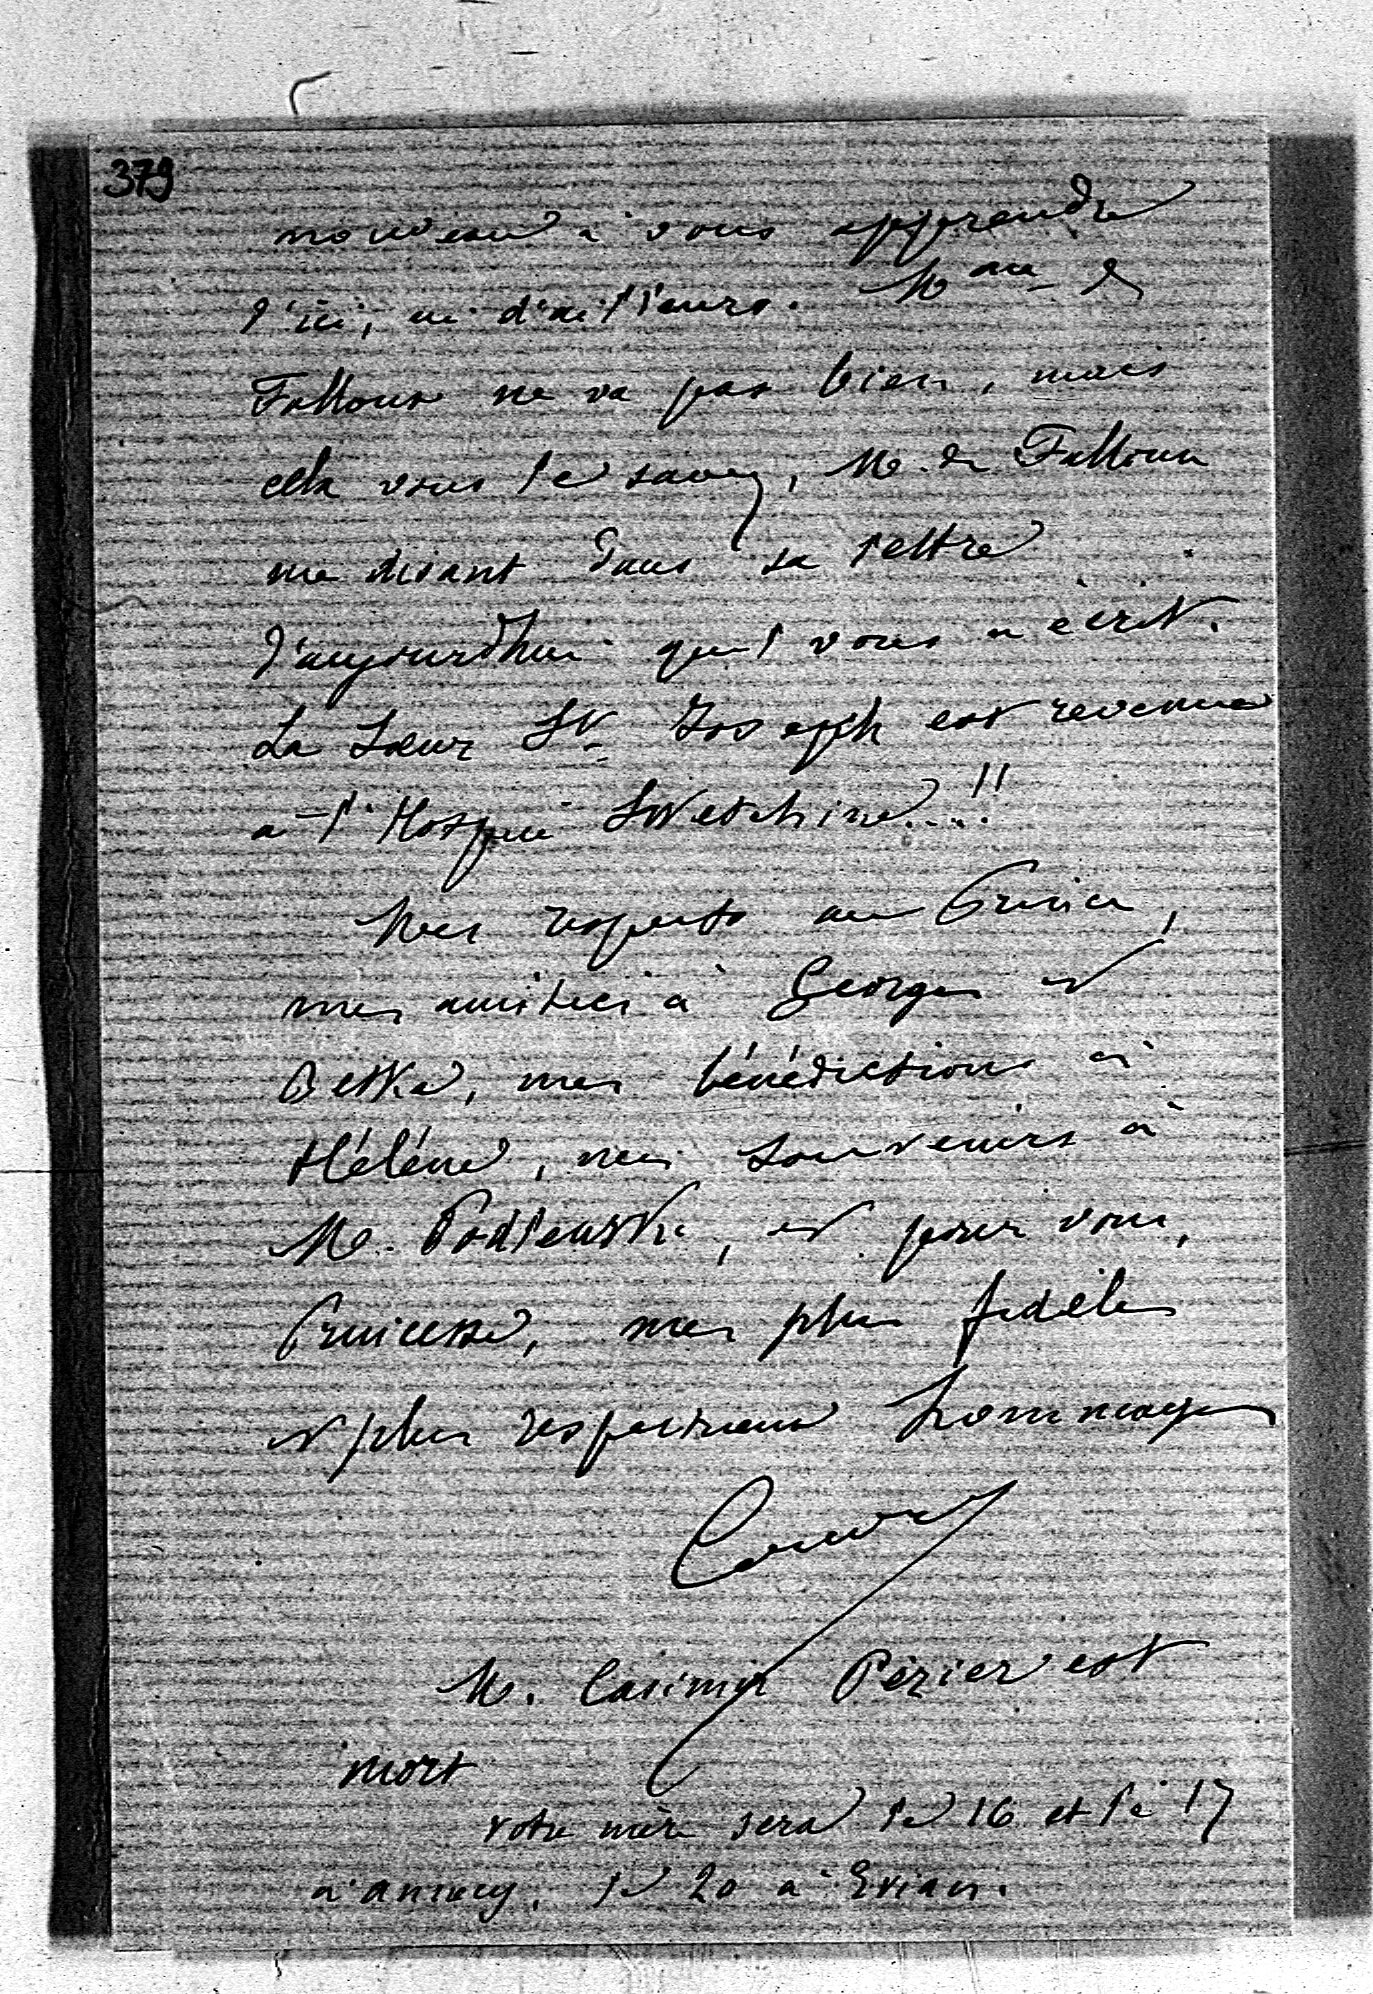 379
nouveau à vous apprendre
d'ici, ni d'ailleurs. Mme de
Falloux ne va pas bien, mais
cela vous le savez, M. de Falloux
me disant dans sa lettre
d'aujourd'hui qu'il vous a écrit.
La Sœur St Joseph est revenue
à l'Hospice Swetchine....!!
Mes respects au Prince,
mes amitiés à Georges et
Betka, mes bénédictions à
Hélène, mes souvenirs à
M. Podlewski, et pour vous,
Princesse, mes plus fidèles
et plus respectueux hommages
M. Casimir Périer est
mort
votre mère sera le 16 et le 17
à Annecy, le 20 à Evian.